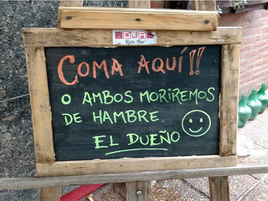 COMA AQUÍ!!
O AMBOS MORIREMOS
DE HAMBRE.
EL DUEÑO